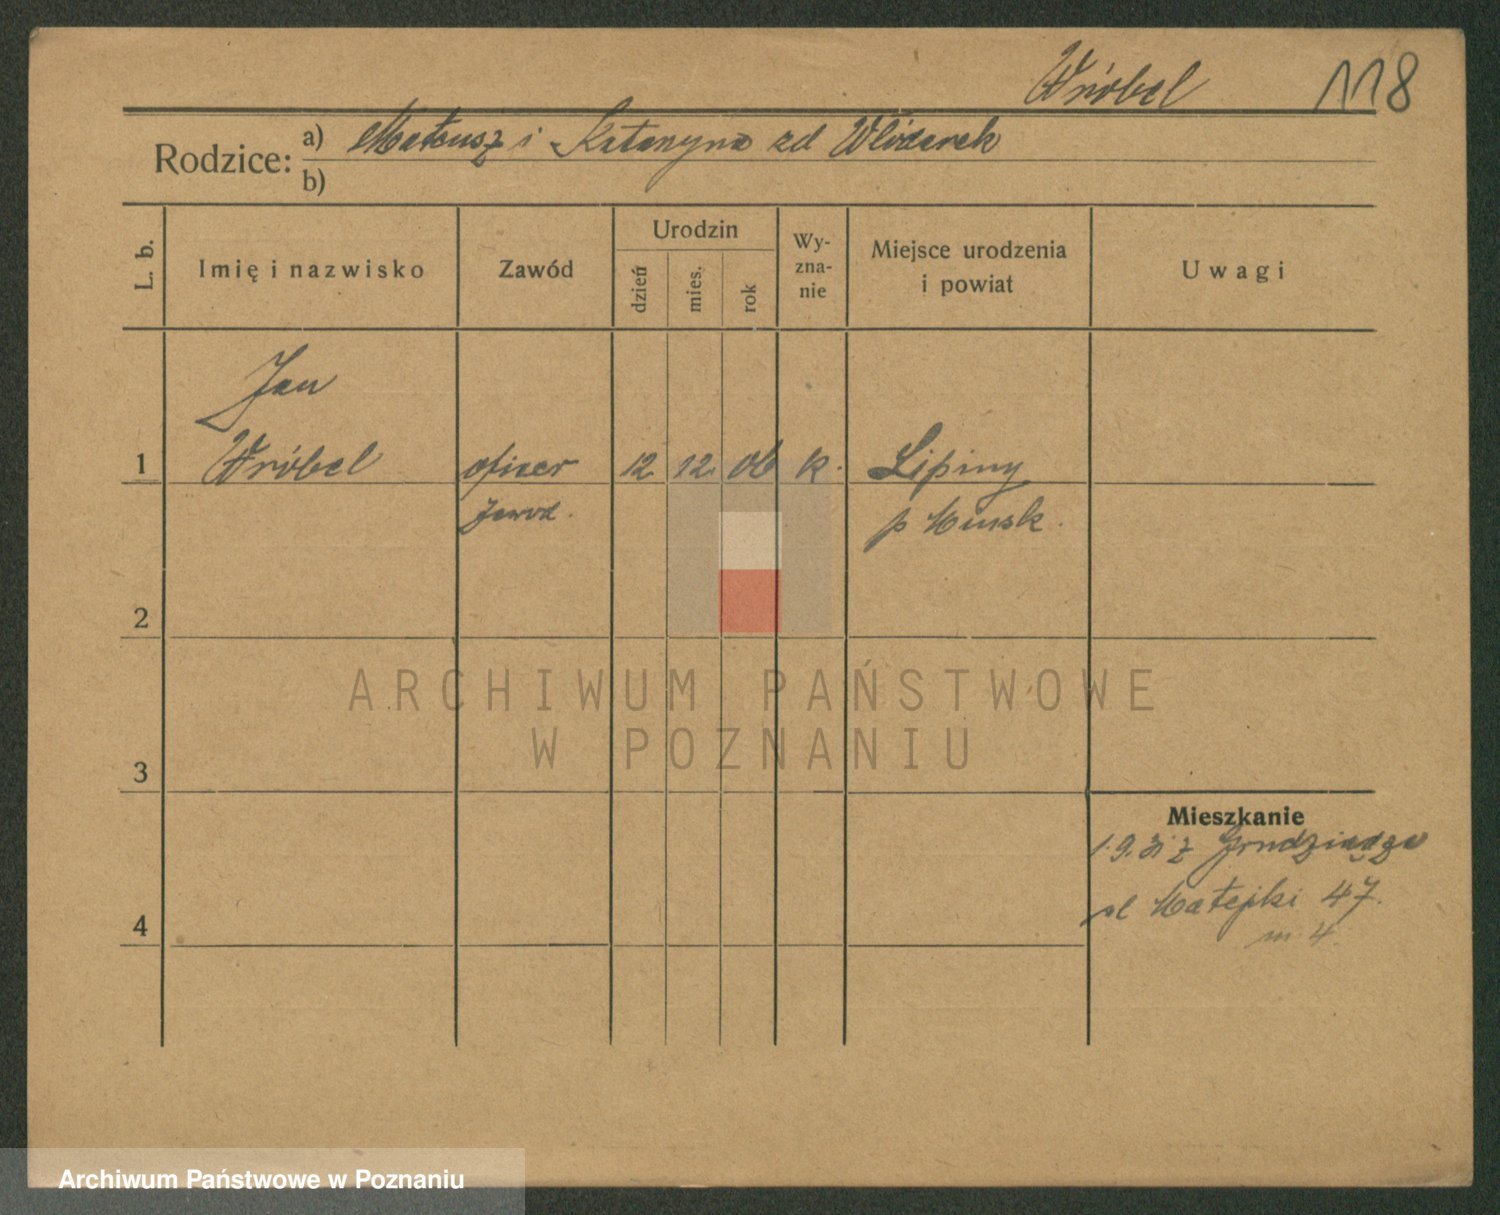 Wróbel 118
Rodzice:
a) Mateusz i Katarzyna zd Włodarek
b)
L. b.
Imię i nazwisko
Zawód
Urodzin
dzień
mies.
rok
Wy-
zna-
nie
Miejsce urodzenia
i powiat
Uwagi
Jan
1 Wróbel oficer 12 12. 06 k. Lipiny
zawod. p Minsk.
2
ARCHIWUM PAŃSTWOWE
W POZNANIU
3
Mieszkanie
1.9.31 z Grudziądza
ul Matejki 47.
4
m 4.
Archiwum Państwowe w Poznaniu